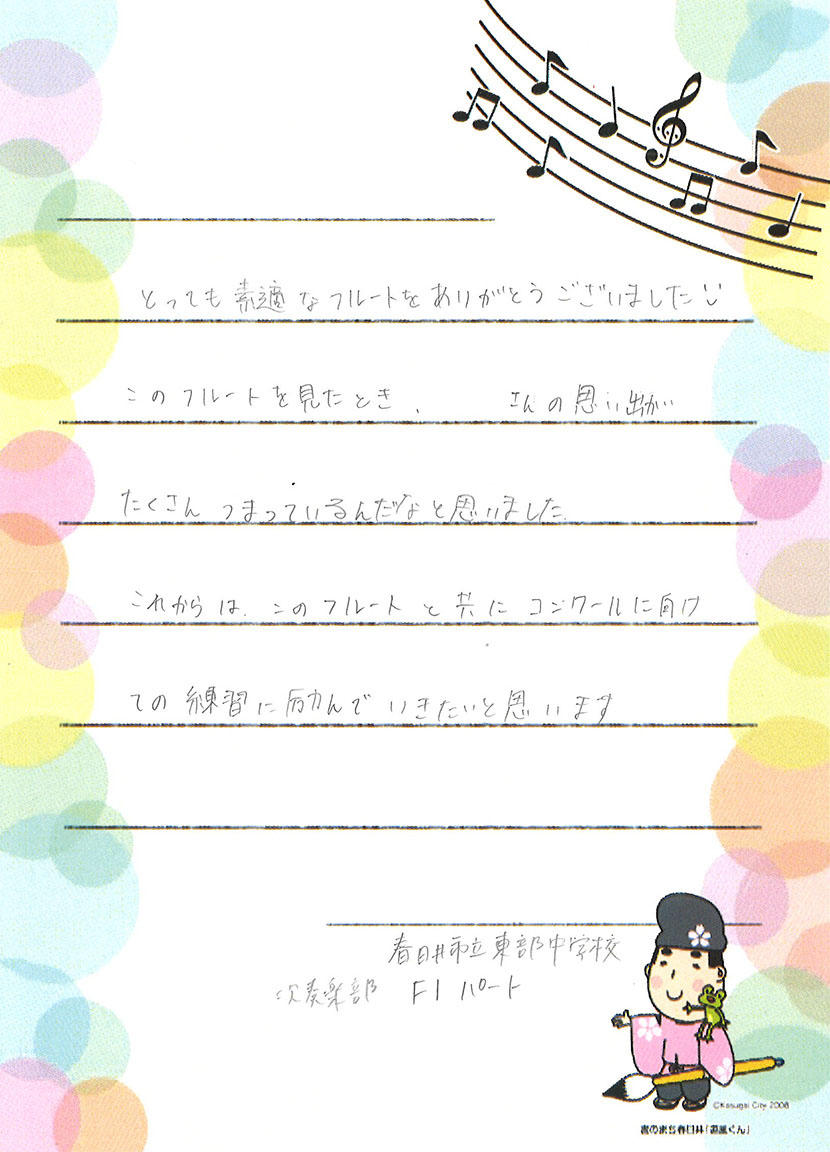 とっても素適なフルートをありがとうございました
このフルートを見たとき、 さんの思い出が
たくさんつまっているんだなと思いました。
これからは、このフルートと共にコンクールに向け
ての練習に励んでいきたいと思います
春日井市立東部中学校
吹奏楽部 Fl パート
©Kasugai City 2008
書のまち春日井「道風くん」